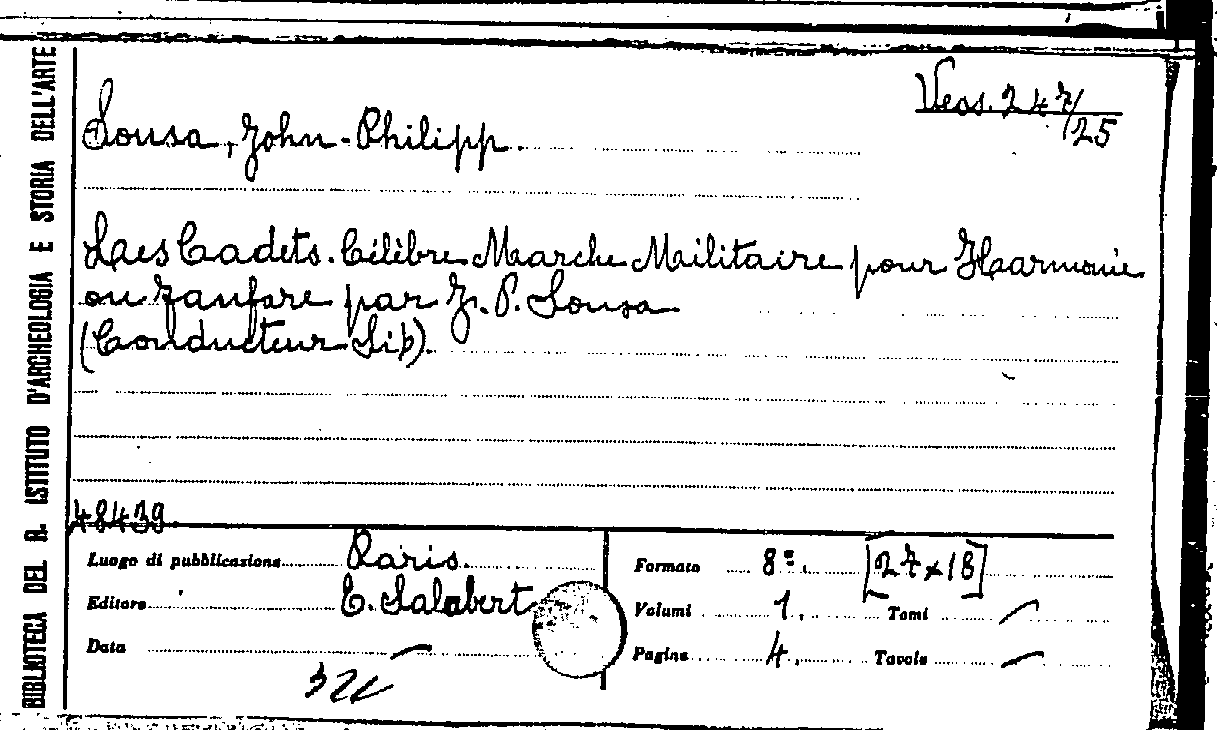 Veas. 247/25
Sousa, John-Philipp.
Laes Cadets. Célèbre Marche Militaire pour Harmonie
ou Fanfare par J. P. Sousa
(Conducteur Sib).
48439.
Luogo di pubblicazione Paris.
Editore E. Salabert
Data —
Formato 8º. [27x18]
Volumi 1. Tomi —
Pagine 4. Tavole —
BIBLIOTECA DEL R. ISTITUTO D'ARCHEOLOGIA E STORIA DELL'ARTE